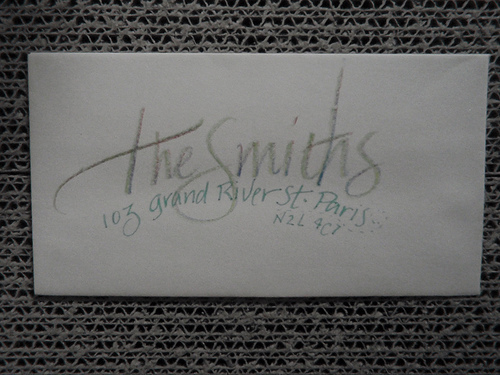 the Smiths
103 grand River St. Paris
N2L 4C7